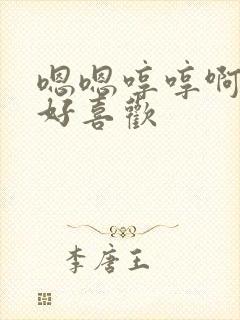 嗯嗯哼哼啊
好喜歡
李唐王